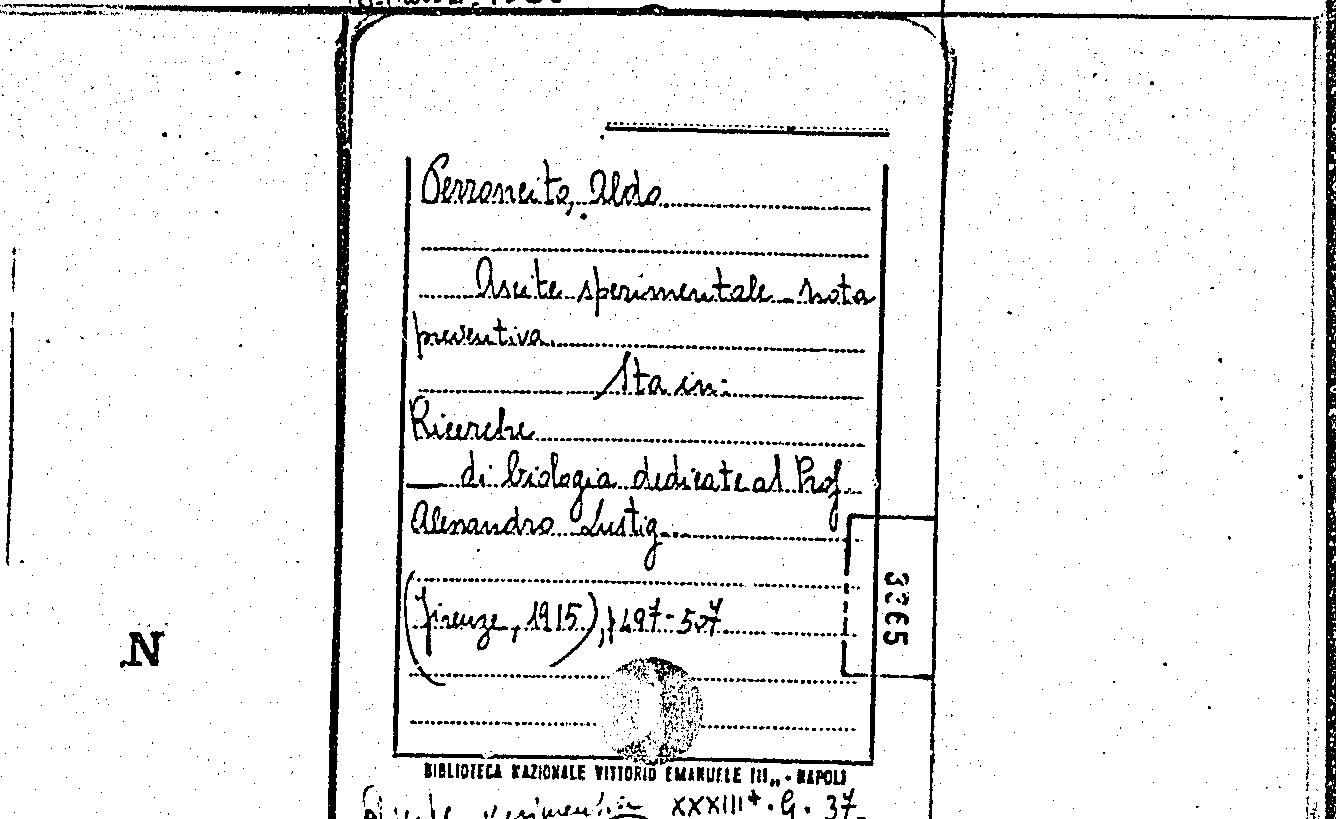 Perroncito, Aldo
Ascite sperimentale - nota
preventiva.
Sta in:
Ricerche
di biologia dedicate al Prof.
Alessandro Lustig.
(Firenze, 1915), p 497-507
3365
N
BIBLIOTECA NAZIONALE VITTORIO EMANUELE III,, - NAPOLI
XXXIII*. G. 37